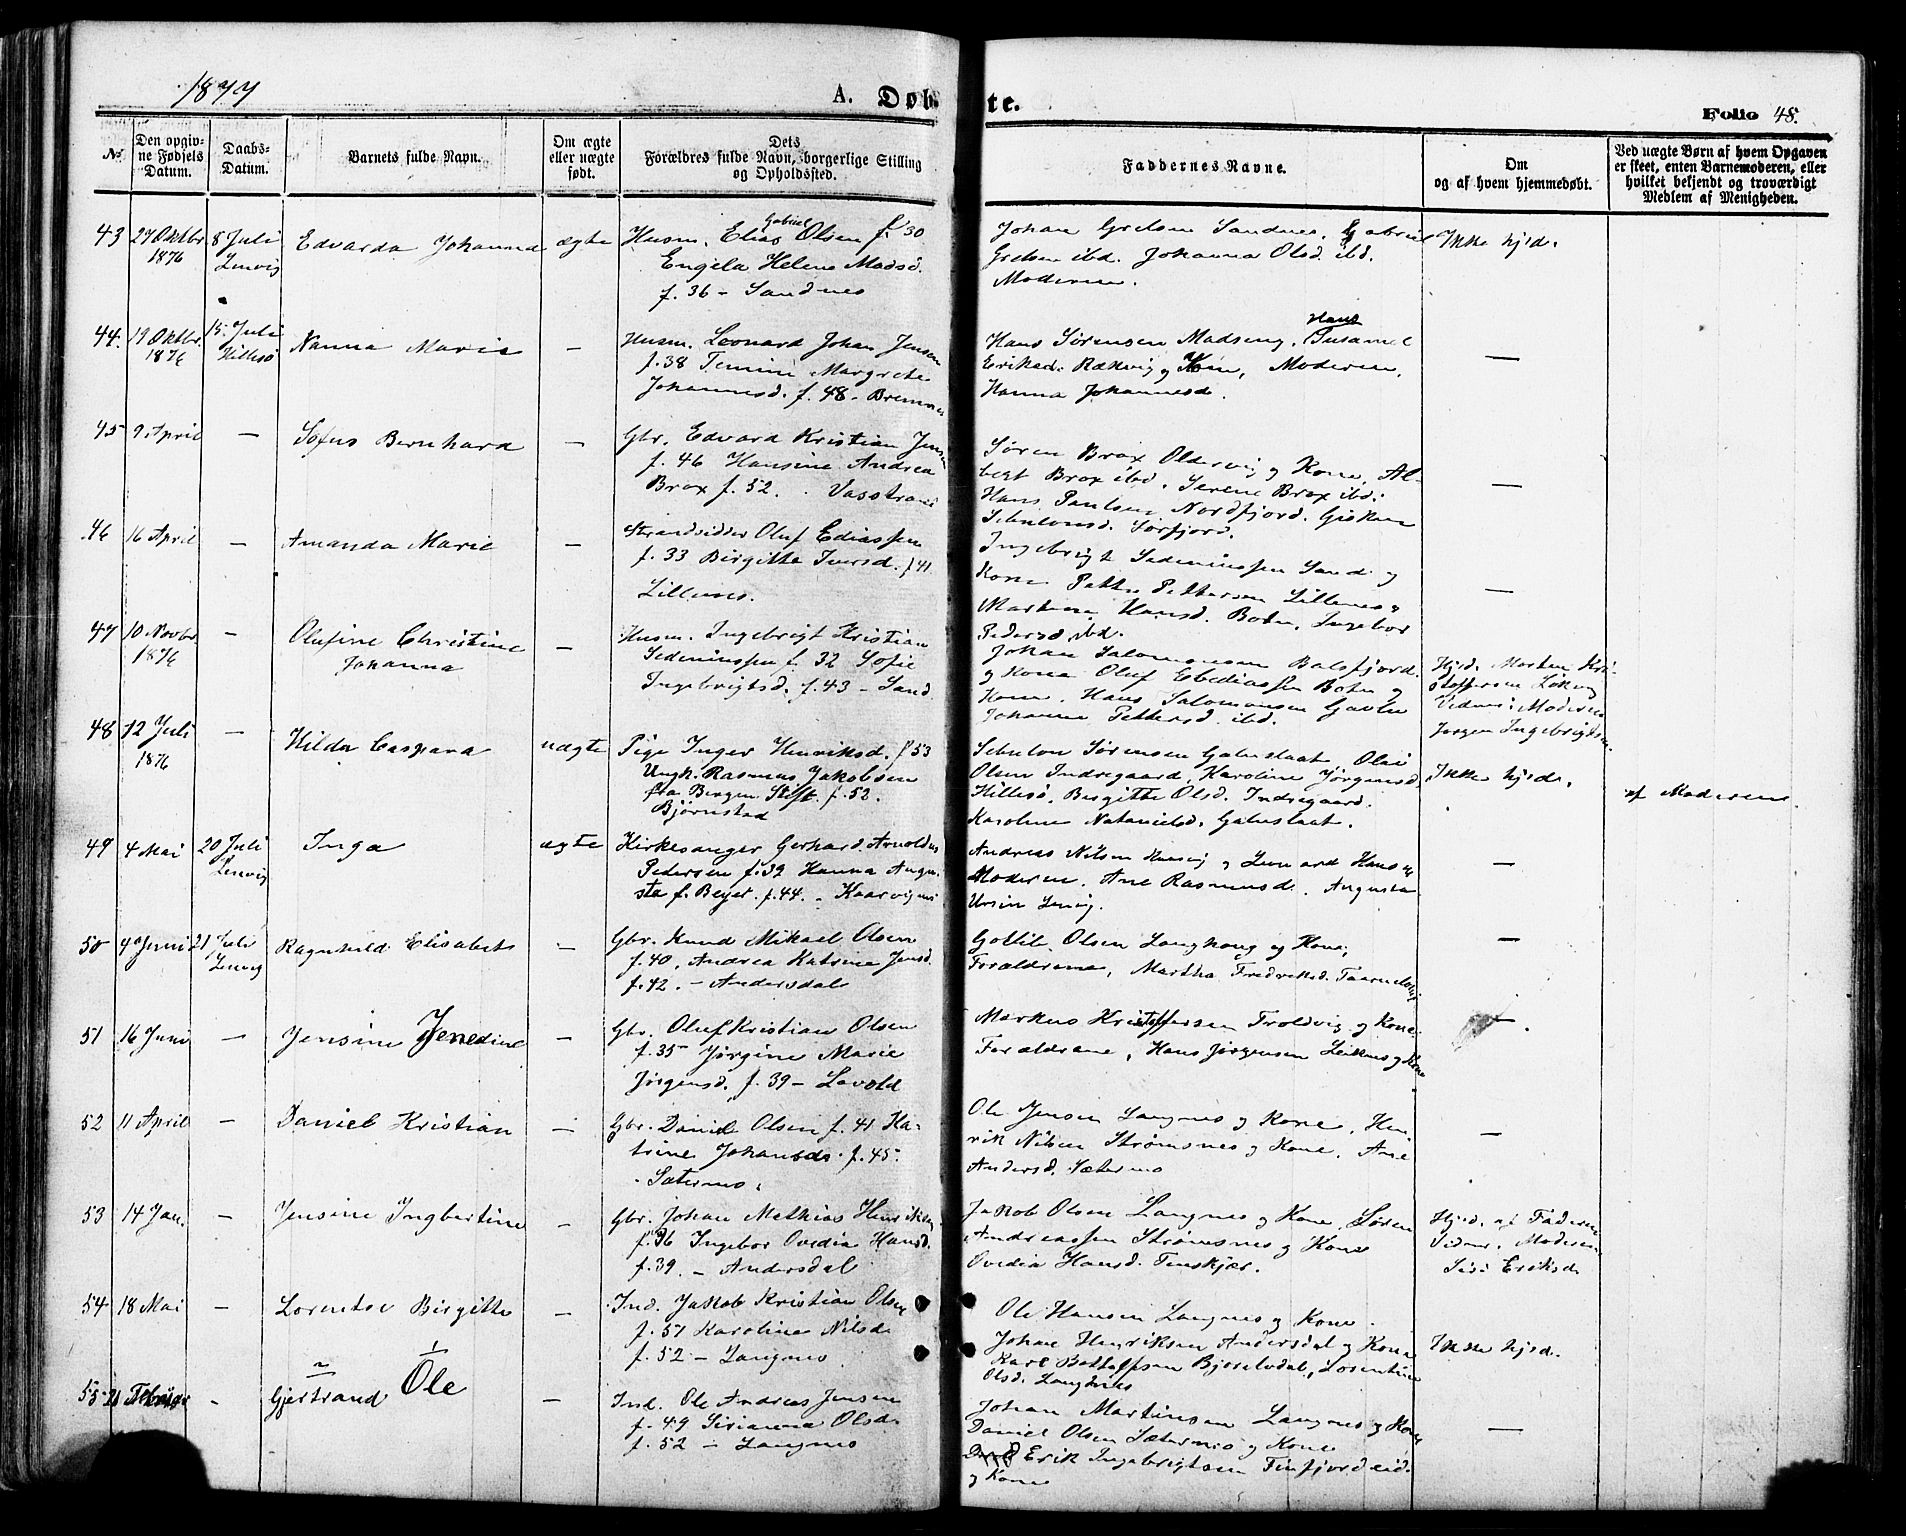 1877
A. Døbte.
Folio 48.
No
Den opgivne Fødsels Datum.
Daabs-Datum.
Barnets fulde Navn.
Om ægte eller uægte født.
Dets Forældres fulde Navn, borgerlige Stilling og Opholdssted.
Faddernes Navne.
Om og af hvem hjemmedøbt.
Ved uægte Børn af hvem Opgaven er skeet, enten Barnemoderen, eller hvilket bekjendt og troværdigt Medlem af Menigheden.
43 27 Oktbr 1876 8 Juli Lenvig Edvarda Johanna ægte
Husm. Elias Gabriel Olsen f. 30
Engela Helene Madsd.
f. 36 - Sandnes
Johan Grelsen Sandnes, Gabriel
Grelsen ibd. Johanna Olsd. ibd.
Moderen.
Ikke hjd.
44. 19 Oktbr. 1876 15. Juli Hillesø Nanna Marie —
Husm. Leonard Johan Jensen
f. 38 Margrete
Johannesd. f. 48 - Bremnes
Hans Sørensen Hans
Moderen,
Hanna Johannesd.
—
45 9 April — Sofus Bernhard —
Gbr. Edvard Kristian Jensen
f. 46 Hansine Andrea
Brox f. 52. Vasstrand
Søren Brox Oldervig og Kone, Al-
bert Brox ibd. Serene Brox ibd.
Hans Paulsen Nordfjord. Gisken
Sebulonsd. Sørfjord.
—
46 16 April — Amanda Marie —
Strandsidder Oluf Ediassen
f. 33 Birgitte Iversd. f 41
Lillenes.
Ingebrigt Sedeniussen Sand og
Kone Petter Pettersen Lillenes og
Martina Hansd. Boten, Ingebor
Pedersd ibd.
—
47 10 Novbr 1876 — Olufine Christine
Johanna —
Husm. Ingebrigt Kristian
Sedeniussen f. 32 Sofie
Ingebrigtsd. f. 43 - Sand
Johan Salomonsen Balsfjord.
og Kona Oluf Ebediassen Boten og
Kone. Hans Salomonsen
Johanna Pettersd. ibd.
Hjd. Morten Kri-
stoffersen
Vidner: Moderen
Jørgen Ingebrigtsen
48 12 Juli 1876 — Hilda Caspara uægte
Pige Inger Henriksd. f 53
Ungk. Rasmus Jakobsen
fra Bergen Stift. f. 52.
Bjørnstad
Sebulon Sørensen Olai
Olsen Indregaard, Karoline Jørgensd.
Hillesø. Birgitte Olsd. Indregaard.
Karoline Natanielsd.
Ikke hjd.
af Moderen.
49 4 Mai 20 Juli Lenvig Inga ægte
Kirkesanger Gerhard Arnoldus
Pedersen f. 32 Hanna Augu-
sta f. Beyer f. 44. - Kaarvignes
Andreas Nilsen og Leonard Hans
Moderen. Ane Rasmusd. Augusta
Ursin Lenvig.
—
50 4 Juni 21 Juli Lenvig Ragnhild Elisabet —
Gbr. Knud Mikael Olsen
f. 40, Andrea Katrine Jensd.
f. 42. - Andersdal
Gottlib Olsen og Kone,
Forældrene, Martha Fredriksd.
—
51 16 Juni — Jensine Jenedine —
Gbr. Oluf Kristian Olsen
f. 35 Jørgine Marie
Jørgensd. f. 39 - Lavold
Markus Kristoffersen Troldvig og Kone
Forældrene, Hans Jørgensen Leiknes og Kone
—
52 11 April — Daniel Kristian —
Gbr. Daniel Olsen f. 41 Ka-
trine Johansd. f. 45.
Sætermo.
Ole Jensen Langnes og Kone, Hen-
rik Nilsen Strømsnes og Kone, Ane
Andersd. Sætermo
—
53 14 Jan. — Jensine Ingbertine —
Gbr. Johan Mathias Henriksen
f. 36 Ingebor Ovedia Hansd.
f. 39. - Andersdal
Jakob Olsen Langnes og Kone, Søren
Andreassen Strømsnes og Kone
Ovedia Hansd. Finskjær.
Hjd. af Faderen
Vidner. Moderen
Eriksd.
54 18 Mai — Lorentse Birgitte —
Ind. Jakob Kristian Olsen
f. 51 Karoline Nilsd.
f. 52 - Langnes
Ole Hansen Langnes og Kone.
Johan Henriksen Andersdal og Kone
Karl Bottolfsen Bjorelvdal, Lorentine
Olsd. Langnes
Ikke hjd.
55 21 Februar — Gjertrand Ole —
Ind. Ole Andreas Jensen
f. 49 Sirianna Olsd.
f. 52 - Langnes
Johan Martinsen Langnes og Kone
Daniel Olsen Sætermo og Kone
Erik Ingebrigtsen Finfjordeid
og Kone
—